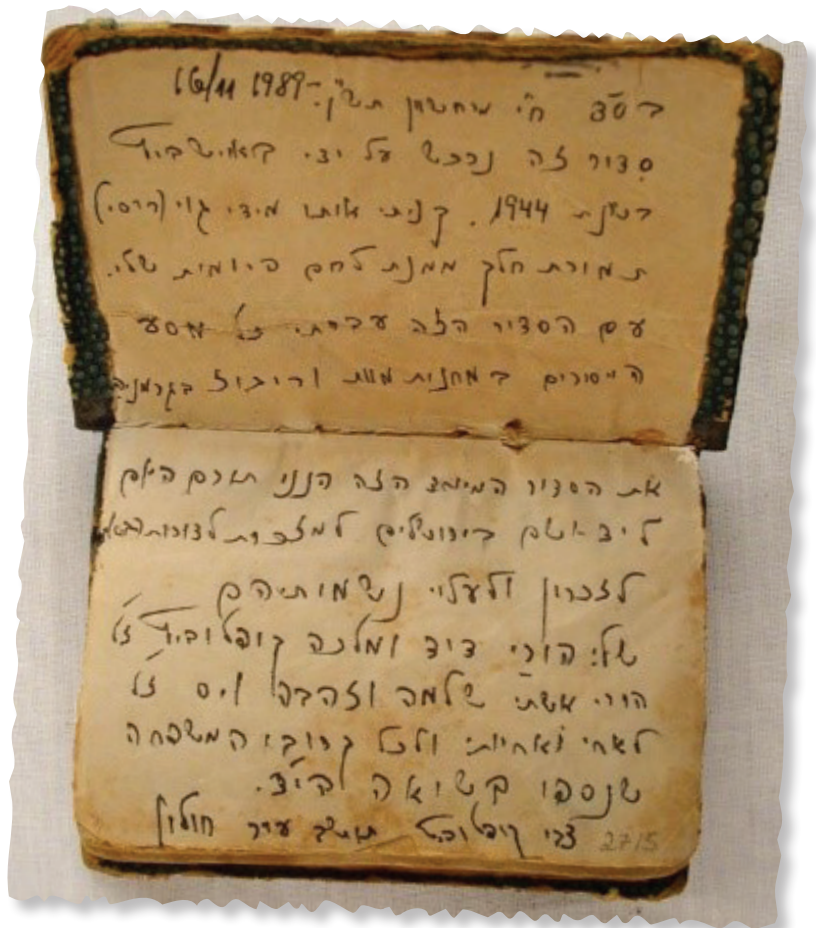 בס"ד ח"י מרחשון תש"ן - 16/11 1989
סדור זה נרכש על ידי באושביץ
בשנת 1944. קניתי אותו מידי גוי (רוסי)
תמורת חלק ממנת לחם היומית שלי.
עם הסדור הזה עברתי כל מסע
היסורים במחנות מוות וריכוז בגרמניה
את הסדור המיוחד הזה הנני תורם היום
ליד ושם בירושלים למזכרת לדורות הבאים
לזכרון ולעלוי נשמותיהם
של: הורי דוד ומלכה קופלוביץ ז"ל
הורי אשתי שלמה וזהבה וים ז"ל
לאחי ואחיותי ולכל קרובי המשפחה
שנספו בשואה הי"ד.
צבי קופלוביץ תושב עיר חולון 2715